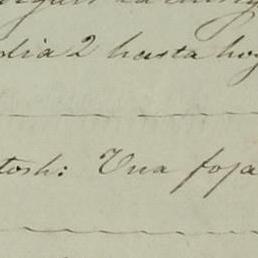 dia 2 hasta hoy
tosh: Una foja